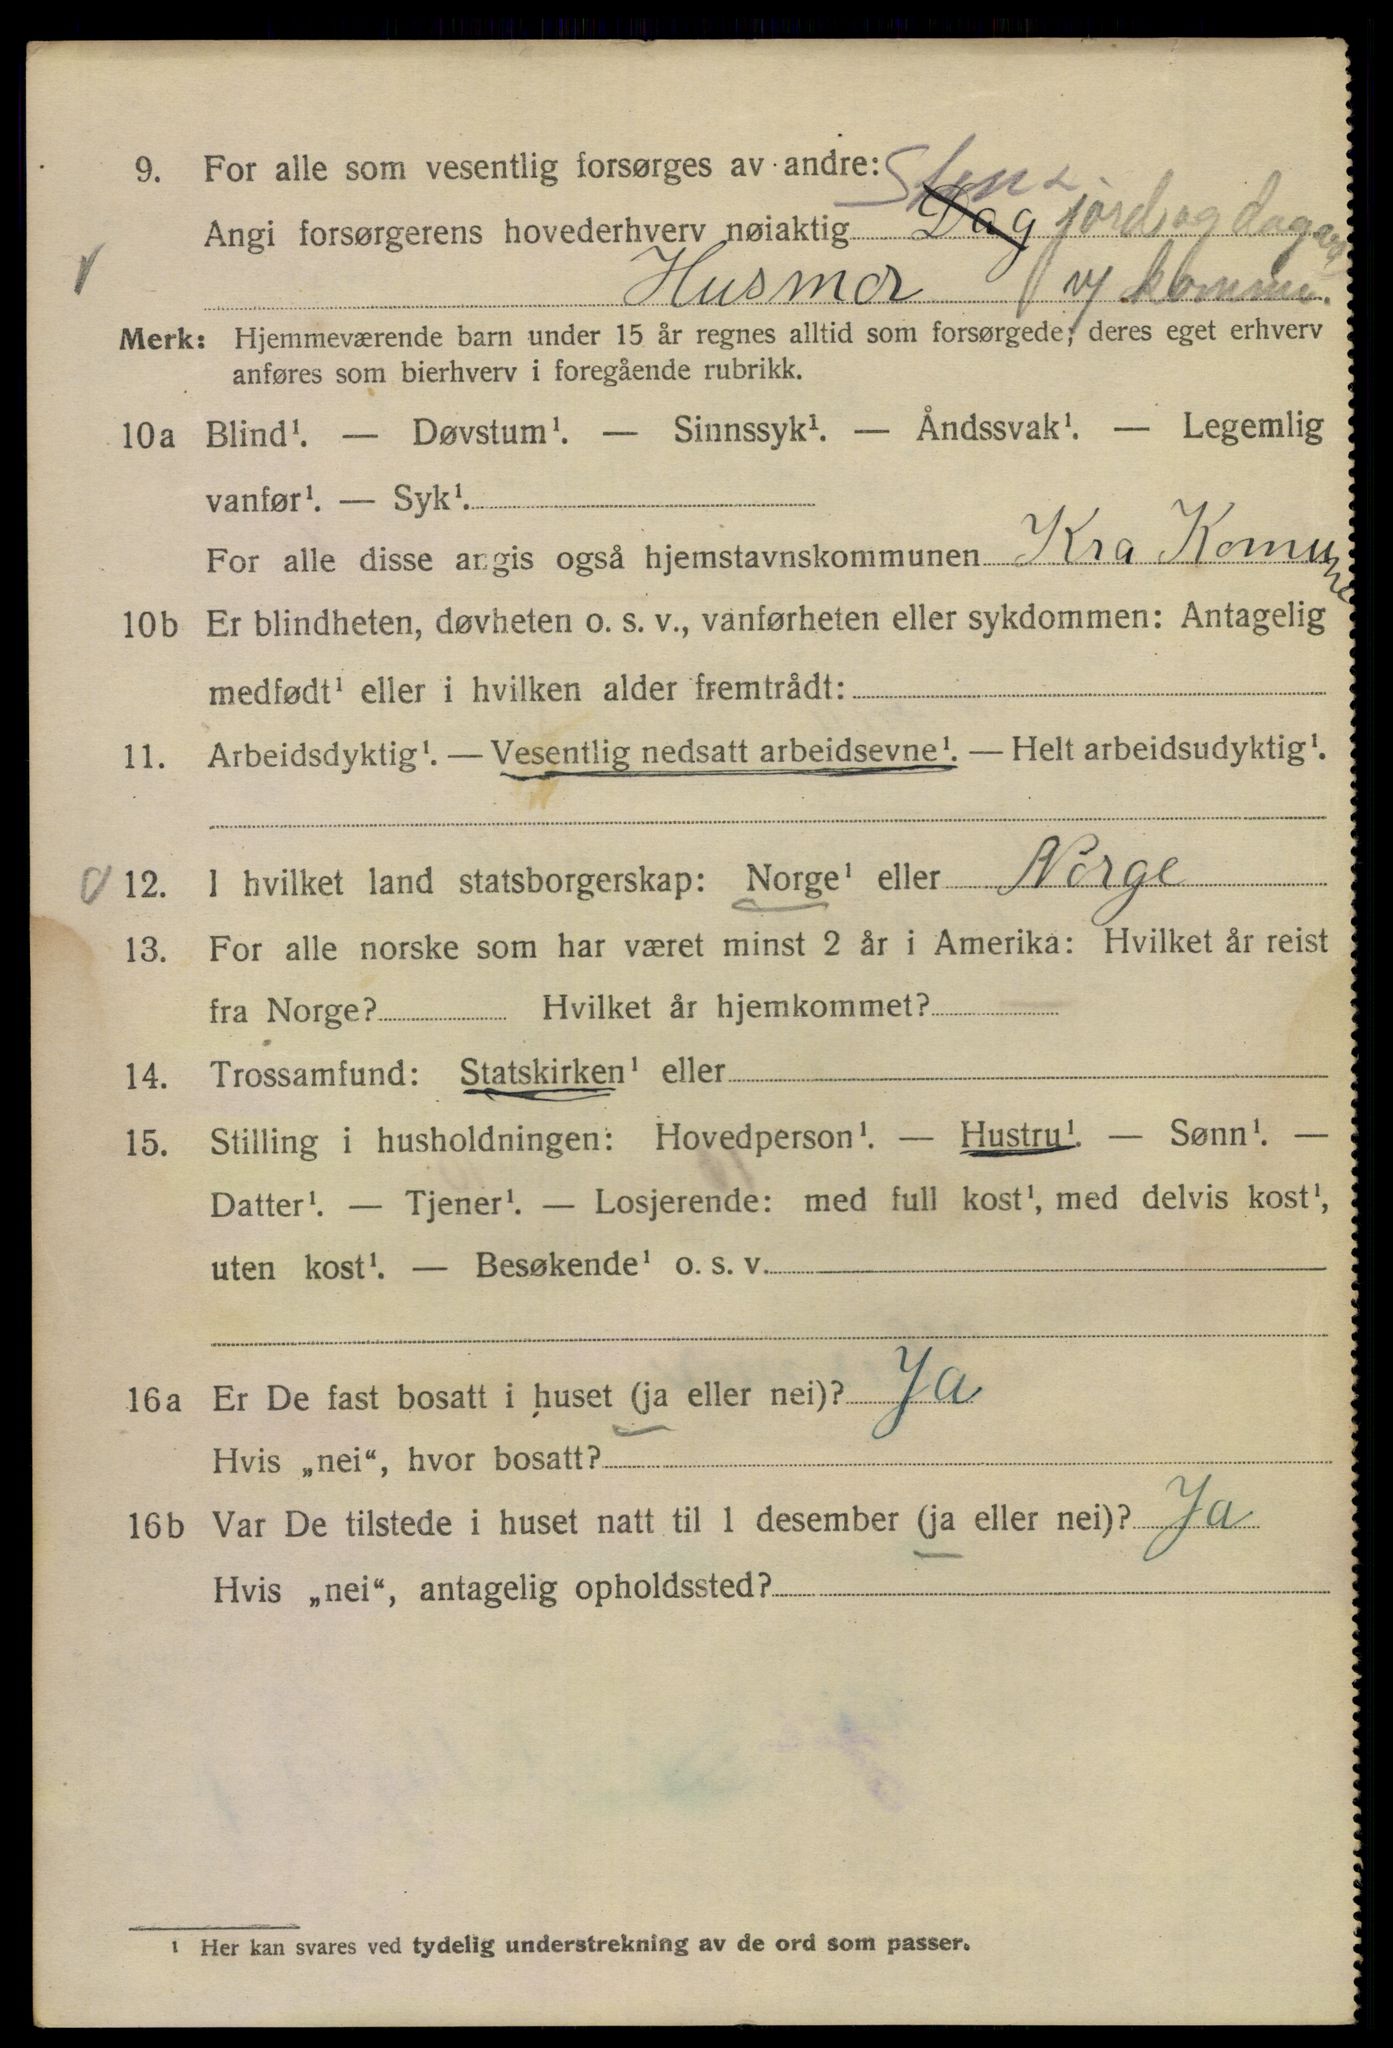 9. For alle som vesentlig forsørges av andre: Sten &
Angi forsørgerens hovederhverv nøiaktig Dag jord og dagarb
Husmor v/ komm.
Merk: Hjemmeværende barn under 15 år regnes alltid som forsørgede; deres eget erhverv
anføres som bierhverv i foregående rubrikk.
10a Blind¹. — Døvstum¹. — Sinnssyk¹. — Åndssvak¹. — Legemlig
vanfør¹. — Syk¹.
For alle disse angis også hjemstavnskommunen Kra Komune
10b Er blindheten, døvheten o. s. v., vanførheten eller sykdommen: Antagelig
medfødt¹ eller i hvilken alder fremtrådt:
11. Arbeidsdyktig¹. — Vesentlig nedsatt arbeidsevne¹. — Helt arbeidsudyktig¹.
12. I hvilket land statsborgerskap: Norge¹ eller Norge
13. For alle norske som har været minst 2 år i Amerika: Hvilket år reist
fra Norge? Hvilket år hjemkommet?
14. Trossamfund: Statskirken¹ eller
15. Stilling i husholdningen: Hovedperson¹. — Hustru¹. — Sønn¹. —
Datter¹. — Tjener¹. — Losjerende: med full kost¹, med delvis kost¹,
uten kost¹. — Besøkende¹ o. s. v.
16a Er De fast bosatt i huset (ja eller nei)? Ja
Hvis „nei“, hvor bosatt?
16b Var De tilstede i huset natt til 1 desember (ja eller nei)? Ja
Hvis „nei“, antagelig opholdssted?
¹ Her kan svares ved tydelig understrekning av de ord som passer.